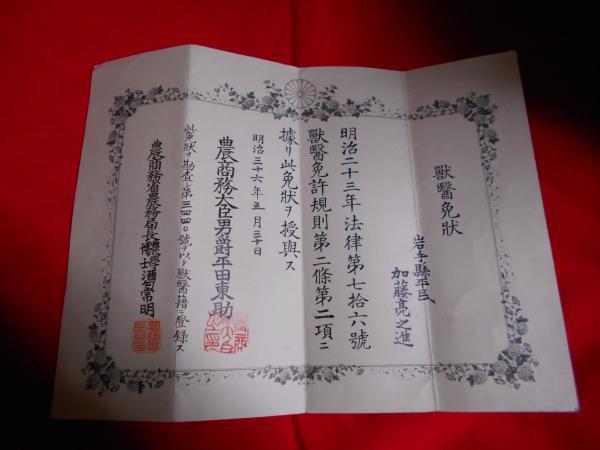 獸醫免狀
岩手縣平民
加藤亮之進
明治二十三年法律第七拾六號
獸醫免許規則第二條第二項ニ
據リ此免狀ヲ授與ス
明治三十六年五月三十日
農商務大臣男爵平田東助
此免狀ヲ勘査シ第三四四〇號ヲ以テ獸醫籍ニ登録ス
農商務省農務局長
博士酒匂常明